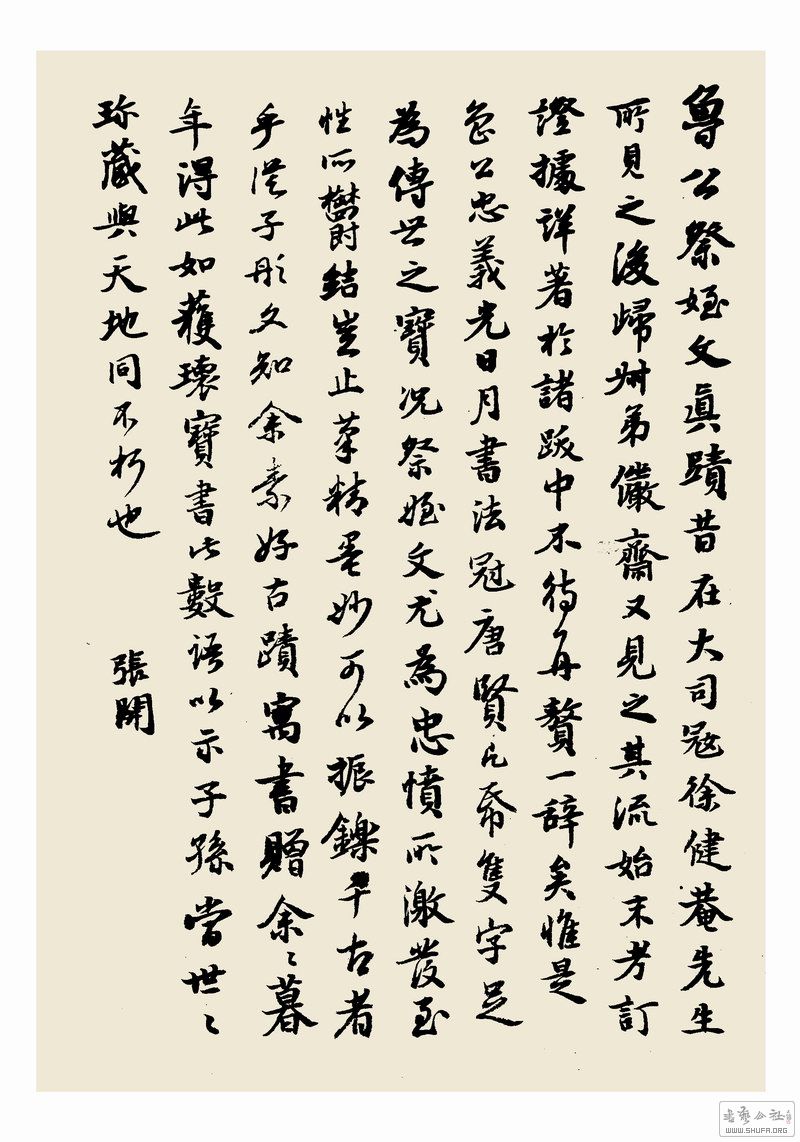 魯公祭姪文真蹟昔在大司寇徐健菴先生
所見之後歸姊弟儼齋又見之其流始末考訂
證據詳著於諸跋中不待再贅一辭矣惟是
魯公忠義光日月書法冠唐賢片帋隻字足
為傳世之寶況祭姪文尤為忠憤所激發至
性所鬱結豈止筆精墨妙可以振鑠千古者
乎從子彤文知余素好古蹟寓書贈余〻暮
年得此如獲瓌寶書此數語以示子孫當世〻
珍藏與天地同不朽也
張開
書藝公社
WWW.SHUFA.ORG